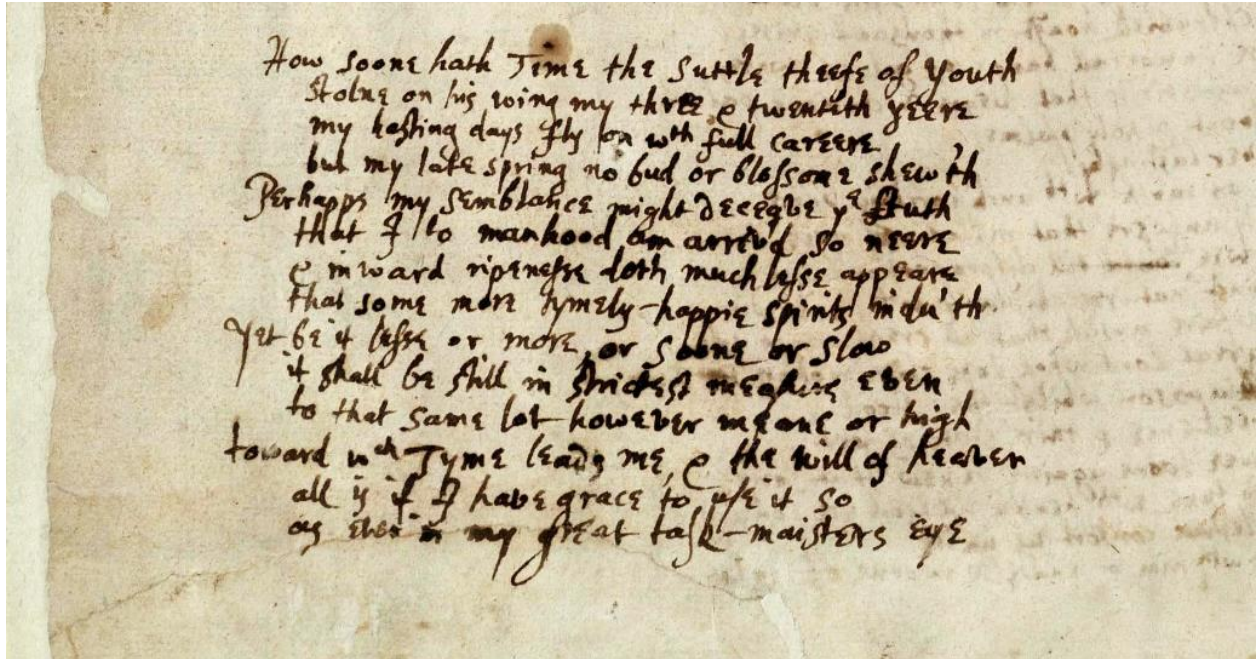 How soone hath Time the suttle theefe of Youth
stolne on his wing my three & twentith yeere
my hasting days fly on wth full careere
but my late spring no bud or blossome shew'th
Perhapps my semblance might deceave ye truth
that I to manhood am arriv'd so neere
& inward ripenesse doth much lesse appeare
that some more tymely-happie spirits indu'th
Yet be it lesse or more, or soone or slow
it shall be still in strictest measure even
to that same lot however meane or high
toward wch Tyme leads me, & the will of heaven
all is if I have grace to use it so
as ever in my great task-maisters eye